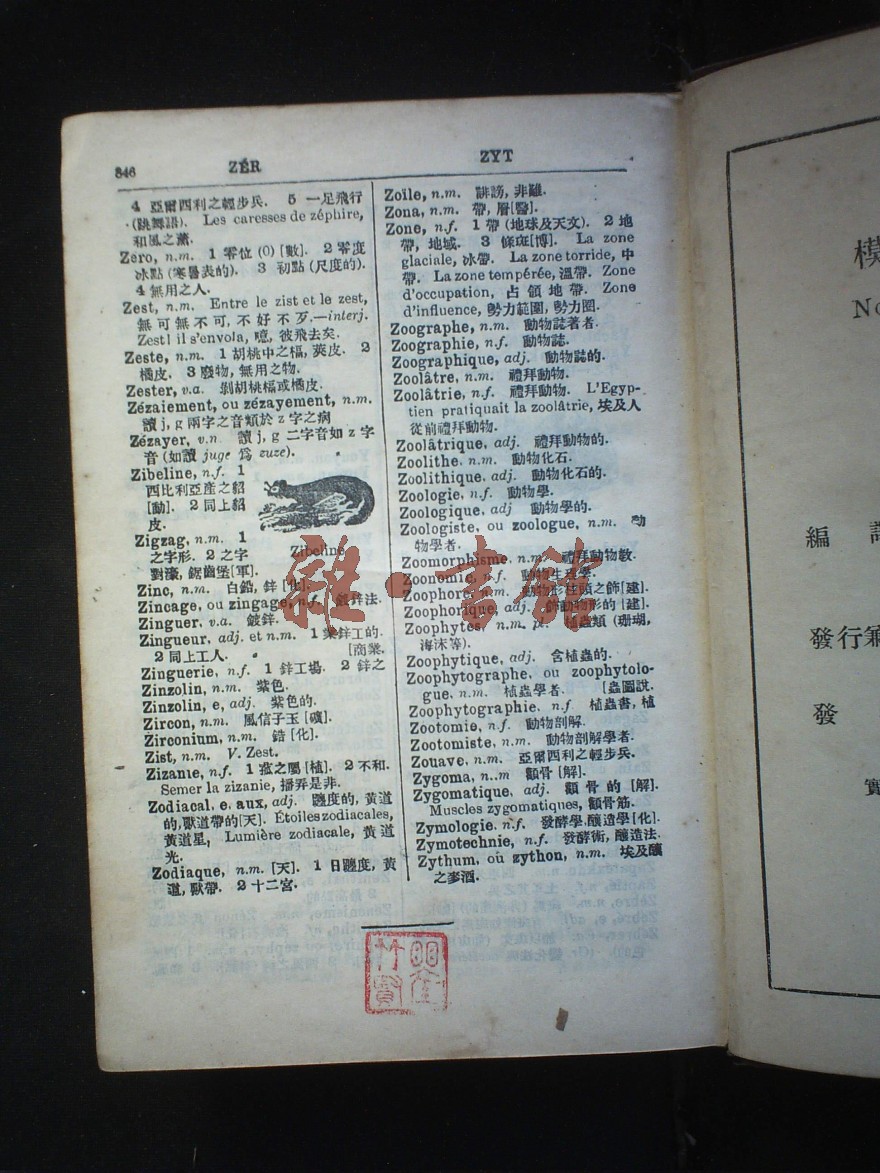 846
ZÉR
ZYT
4 亞爾西利之輕步兵. 5 一足飛行
(跳舞語). Les caresses de zéphire,
和風之薰.
Zéro, n.m. 1 零位 (0) [數]. 2 零度
冰點 (寒暑表的). 3 初點 (尺度的).
4 無用之人.
Zest, n.m. Entre le zist et le zest,
無可無不可, 不好不歹.—interj.
Zest! il s'envola, 噫, 彼飛去矣.
Zeste, n.m. 1 胡桃中之槅, 莢皮. 2
橘皮. 3 廢物, 無用之物.
Zester, v.a. 剝胡桃槅或橘皮.
Zézaiement, ou zézayement, n.m.
讀 j, g 兩字之音類於 z 字之病
Zézayer, v.n. 讀 j, g 二字音如 z 字
音 (如讀 juge 爲 zuze).
Zibeline, n.f. 1
西比利亞產之貂
[動]. 2 同上貂
皮.
Zigzag, n.m. 1
之字形. 2 之字
對濠, 鋸齒堡 [軍].
Zibeline
Zinc, n.m. 白鉛, 鋅 [化].
Zincage, ou zingage, n.f. 鍍鋅法.
Zinguer, v.a. 鍍鋅.
Zingueur, adj. et n.m. 1 業鋅工的.
2 同上工人. [商業.
Zinguerie, n.f. 1 鋅工場. 2 鋅之
Zinzolin, n.m. 紫色.
Zinzolin, e, adj. 紫色的.
Zircon, n.m. 風信子玉 [礦].
Zirconium, n.m. 鋯 [化].
Zist, n.m. V. Zest.
Zizanie, n.f. 1 之屬 [植]. 2 不和.
Semer la zizanie, 播弄是非.
Zodiacal, e, aux, adj. 躔度的, 黃道
的, 獸道帶的 [天]. Étoiles zodiacales,
黃道星, Lumière zodiacale, 黃道
光.
Zodiaque, n.m. [天]. 1 日躔度, 黃
道, 獸帶. 2 十二宮.
Zoïle, n.m. 誹謗, 非難.
Zona, n.m. 帶, 層 [醫].
Zone, n.f. 1 帶 (地球及天文). 2 地
帶, 地域. 3 條斑 [博]. La zone
glaciale, 冰帶. La zone torride, 中
帶. La zone tempérée, 溫帶. Zone
d'occupation, 占領地帶. Zone
d'influence, 勢力範圍, 勢力圈.
Zoographe, n.m. 動物誌著者.
Zoographie, n.f. 動物誌.
Zoographique, adj. 動物誌的.
Zoolâtre, n.m. 禮拜動物.
Zoolâtrie, n.f. 禮拜動物. L'Egyp-
tien pratiquait la zoolâtrie, 埃及人
從前禮拜動物.
Zoolâtrique, adj. 禮拜動物的.
Zoolithe, n.m. 動物化石.
Zoolithique, adj. 動物化石的.
Zoologie, n.f. 動物學.
Zoologique, adj 動物學的.
Zoologiste, ou zoologue, n.m. 動
物學者.
Zoomorphisme, n.m. 禮拜動物教.
Zoonomie, n.f. 動物生理學.
Zoophore, n.m. 動物形柱頭之飾 [建].
Zoophorique, adj. 飾動物形的 [建].
Zoophytes, n.m. pl. 植蟲類 (珊瑚,
海沫等).
Zoophytique, adj. 含植蟲的.
Zoophytographe, ou zoophytolo-
gue, n.m. 植蟲學者. [蟲圖說.
Zoophytographie, n.f. 植蟲書, 植
Zootomie, n.f. 動物剖解.
Zootomiste, n.m. 動物剖解學者.
Zouave, n.m. 亞爾西利之輕步兵.
Zygoma, n..m 顴骨 [解].
Zygomatique, adj. 顴骨的 [解].
Muscles zygomatiques, 顴骨筋.
Zymologie, n.f. 發酵學, 釀造學 [化].
Zymotechnie, n.f. 發酵術, 釀造法.
Zythum, ou zython, n.m. 埃及釀
之麥酒.
雜·書館
模
No
編 譯
發行兼
發